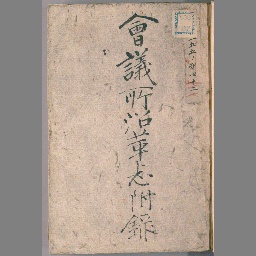 會議所沿革志附録